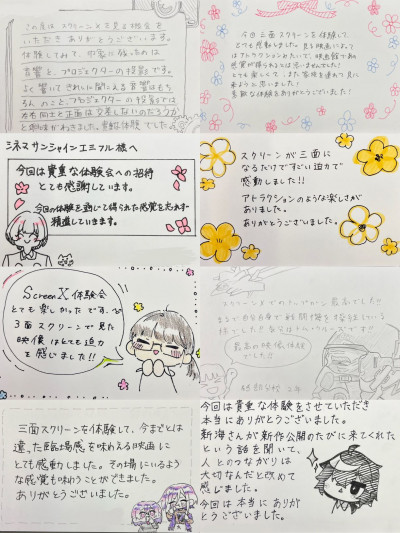 この度は スクリーンXを見る機会を
いただきありがとうございます。
体験してみて、印象に残ったのは
音響と、プロジェクターの投影です。
よく響いてきれいに聞こえる音響はもち
ろん のこと、プロジェクターの投影では
本当
と興味がわきました。貴重な体験でした
今日三面スクリーンを体験して、
とても感動しました。見る映画によって
はアトラクションみたいで、映画館であ
とても楽しくて、また家族を連れて見に
来ようと思いました!
貴重な体験をありがとうございました。
シネマサンシャインエミフル様へ
今回は貴重な体験会への招待
とても感謝しています。
今回の体験を通じて得られた感覚を忘れず
精進していきます。
スクリーンが三面に
なるだけですごい迫力で
感動しました!!
アトラクションのような楽しさが
ありました。
ありがとうございました。
ScreenX 体験会
とても楽しかったです。
3面スクリーンで見た
映像はとても迫力
を感じました!!
最高の映像体験
でした
三面スクリーンを体験して、今までとは
違った臨場感を味わえる映画に
とても感動しました。その場にいるよう
な感覚も味わうことができました。
ありがとうございました。
今回は貴重な体験をさせていただき
本当にありがとうございました。
新海さんが新作公開のたびに来てくれた
という話を聞いて、
人とのつながりは
大切なんだと改めて
感じました。
今回は本当に ありが
とうございました。